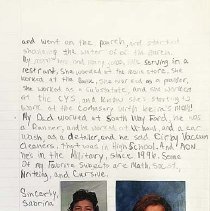 and went on the porch, and started
shoveling the water off of the porch.
My mom
restraunt, She worked at the main store, She
worked at the bank. She worked as a
she worked as a Substatute, and she worked
at the CYS and know she's starting to
work at the comissary with Kevin's Mom!
My Dad worked at South Way Ford, he was
a Runner, and he worked at U-haul, and a car
Wash, as a Detailer, and he sold Kirby Vacuum
Cleaners, that was in High School. And NOW
he's in the Military, since 1996. Some
of my Favorite Subjects are Math, Social,
Writeing, and Cursive.
Sincerly,
Sabrina